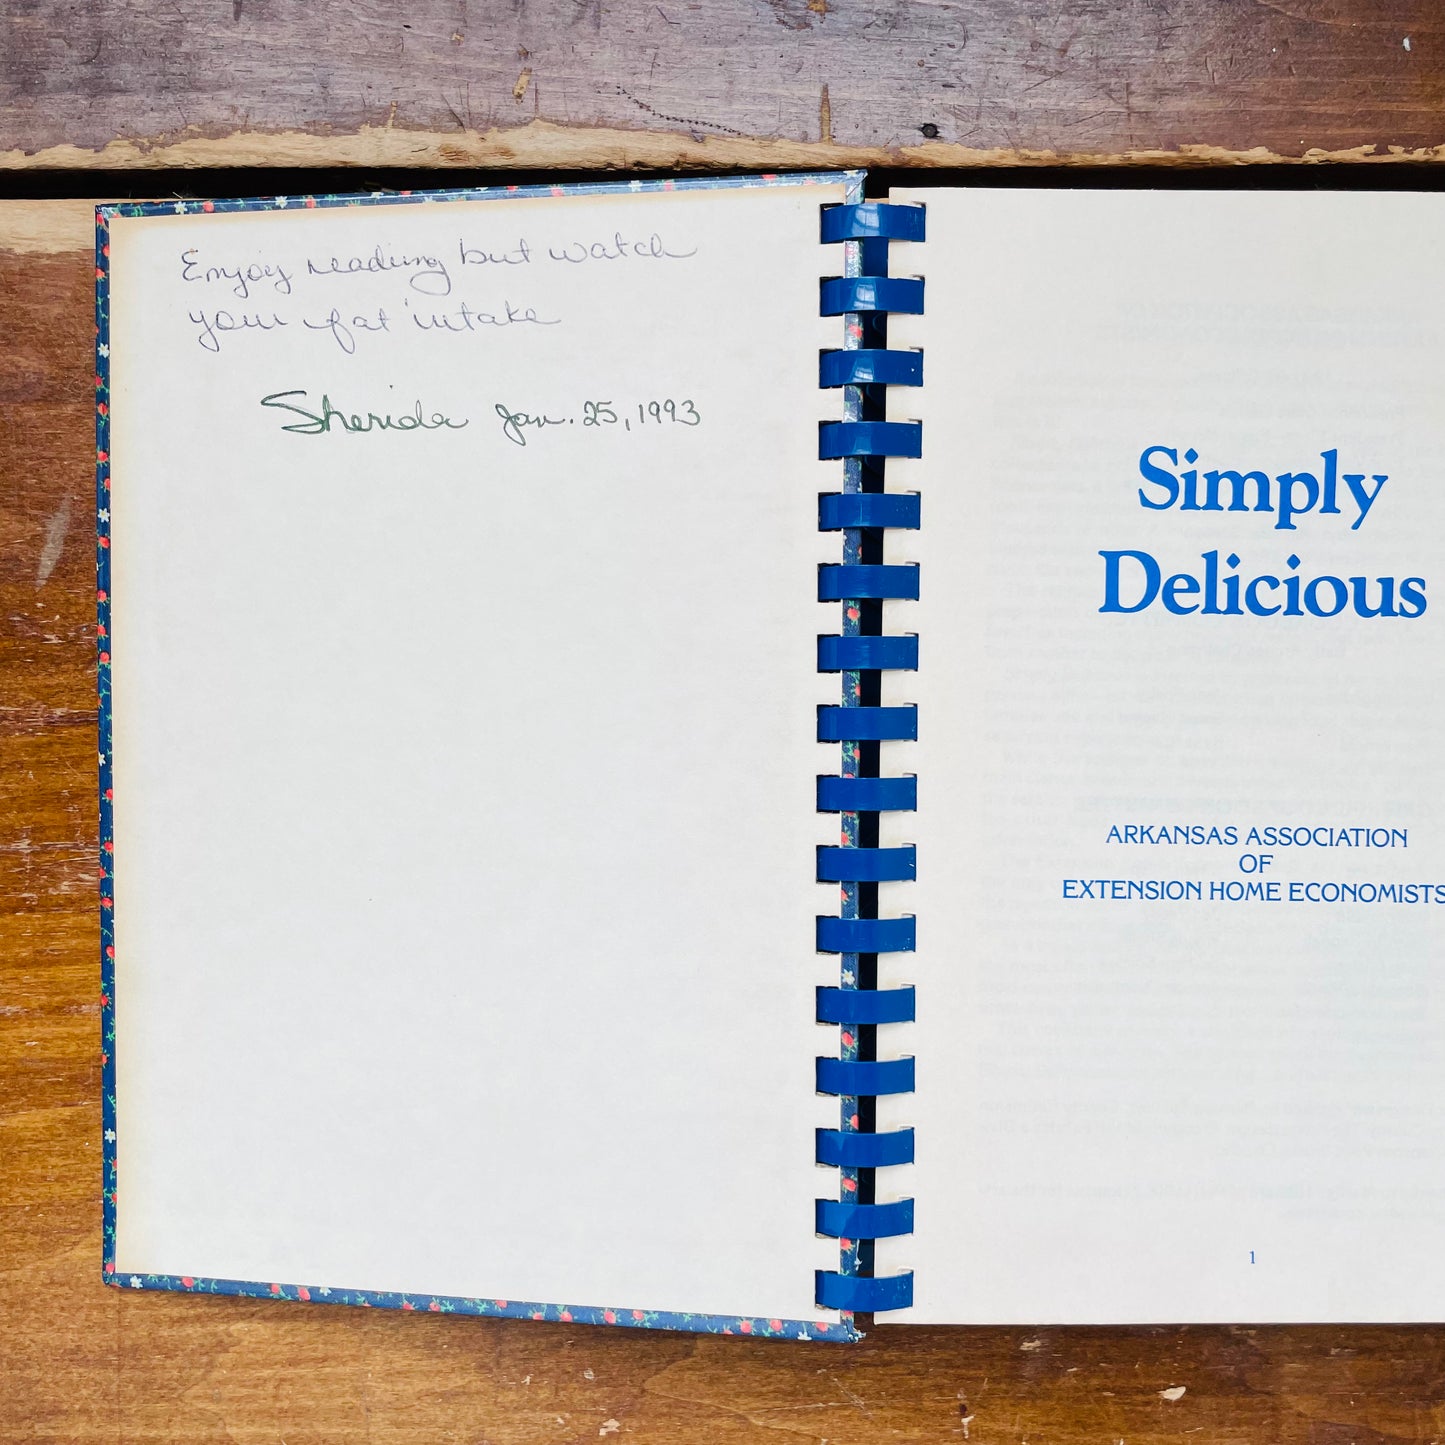 Enjoy reading but watch
your fat intake
Sherida Jan. 25, 1993
Simply
Delicious
ARKANSAS ASSOCIATION
OF
EXTENSION HOME ECONOMISTS
1